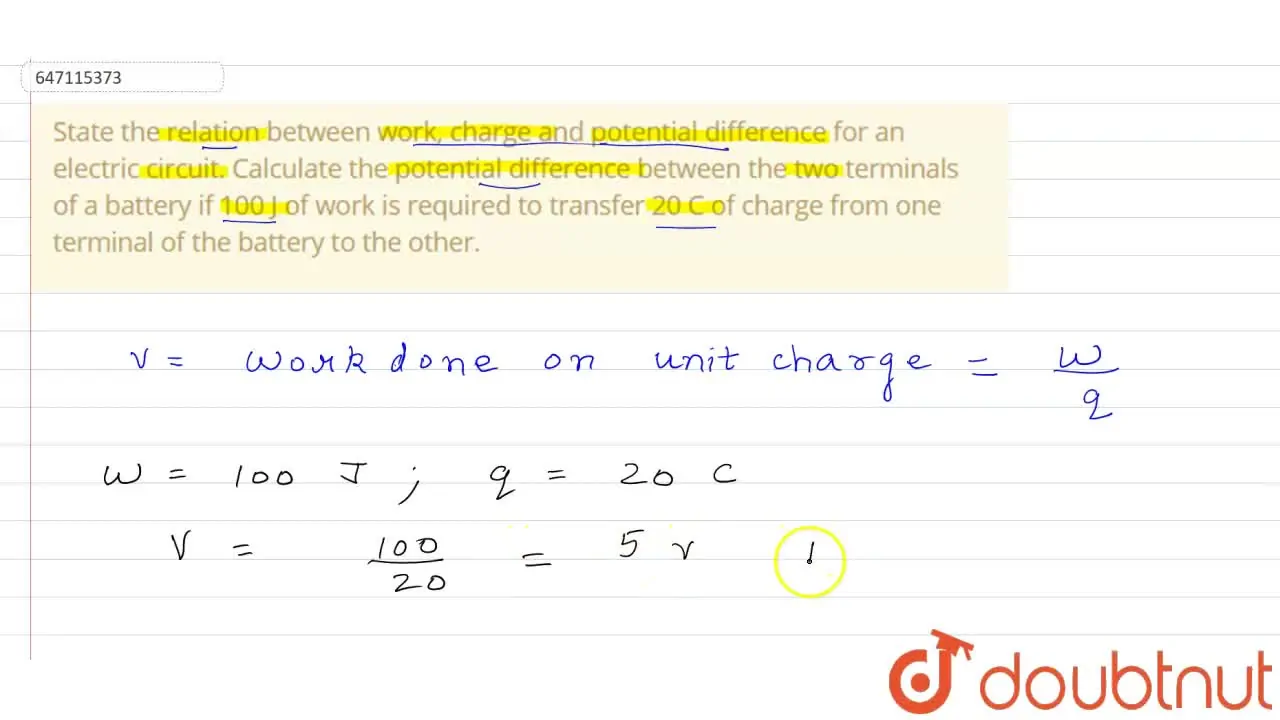 647115373
State the relation between work, charge and potential difference for an
electric circuit. Calculate the potential difference between the two terminals
of a battery if 100 J of work is required to transfer 20 C of charge from one
terminal of the battery to the other.
V = work done on unit charge = W/q
W = 100 J ; q = 20 C
V = 100/20 = 5 V
doubtnut